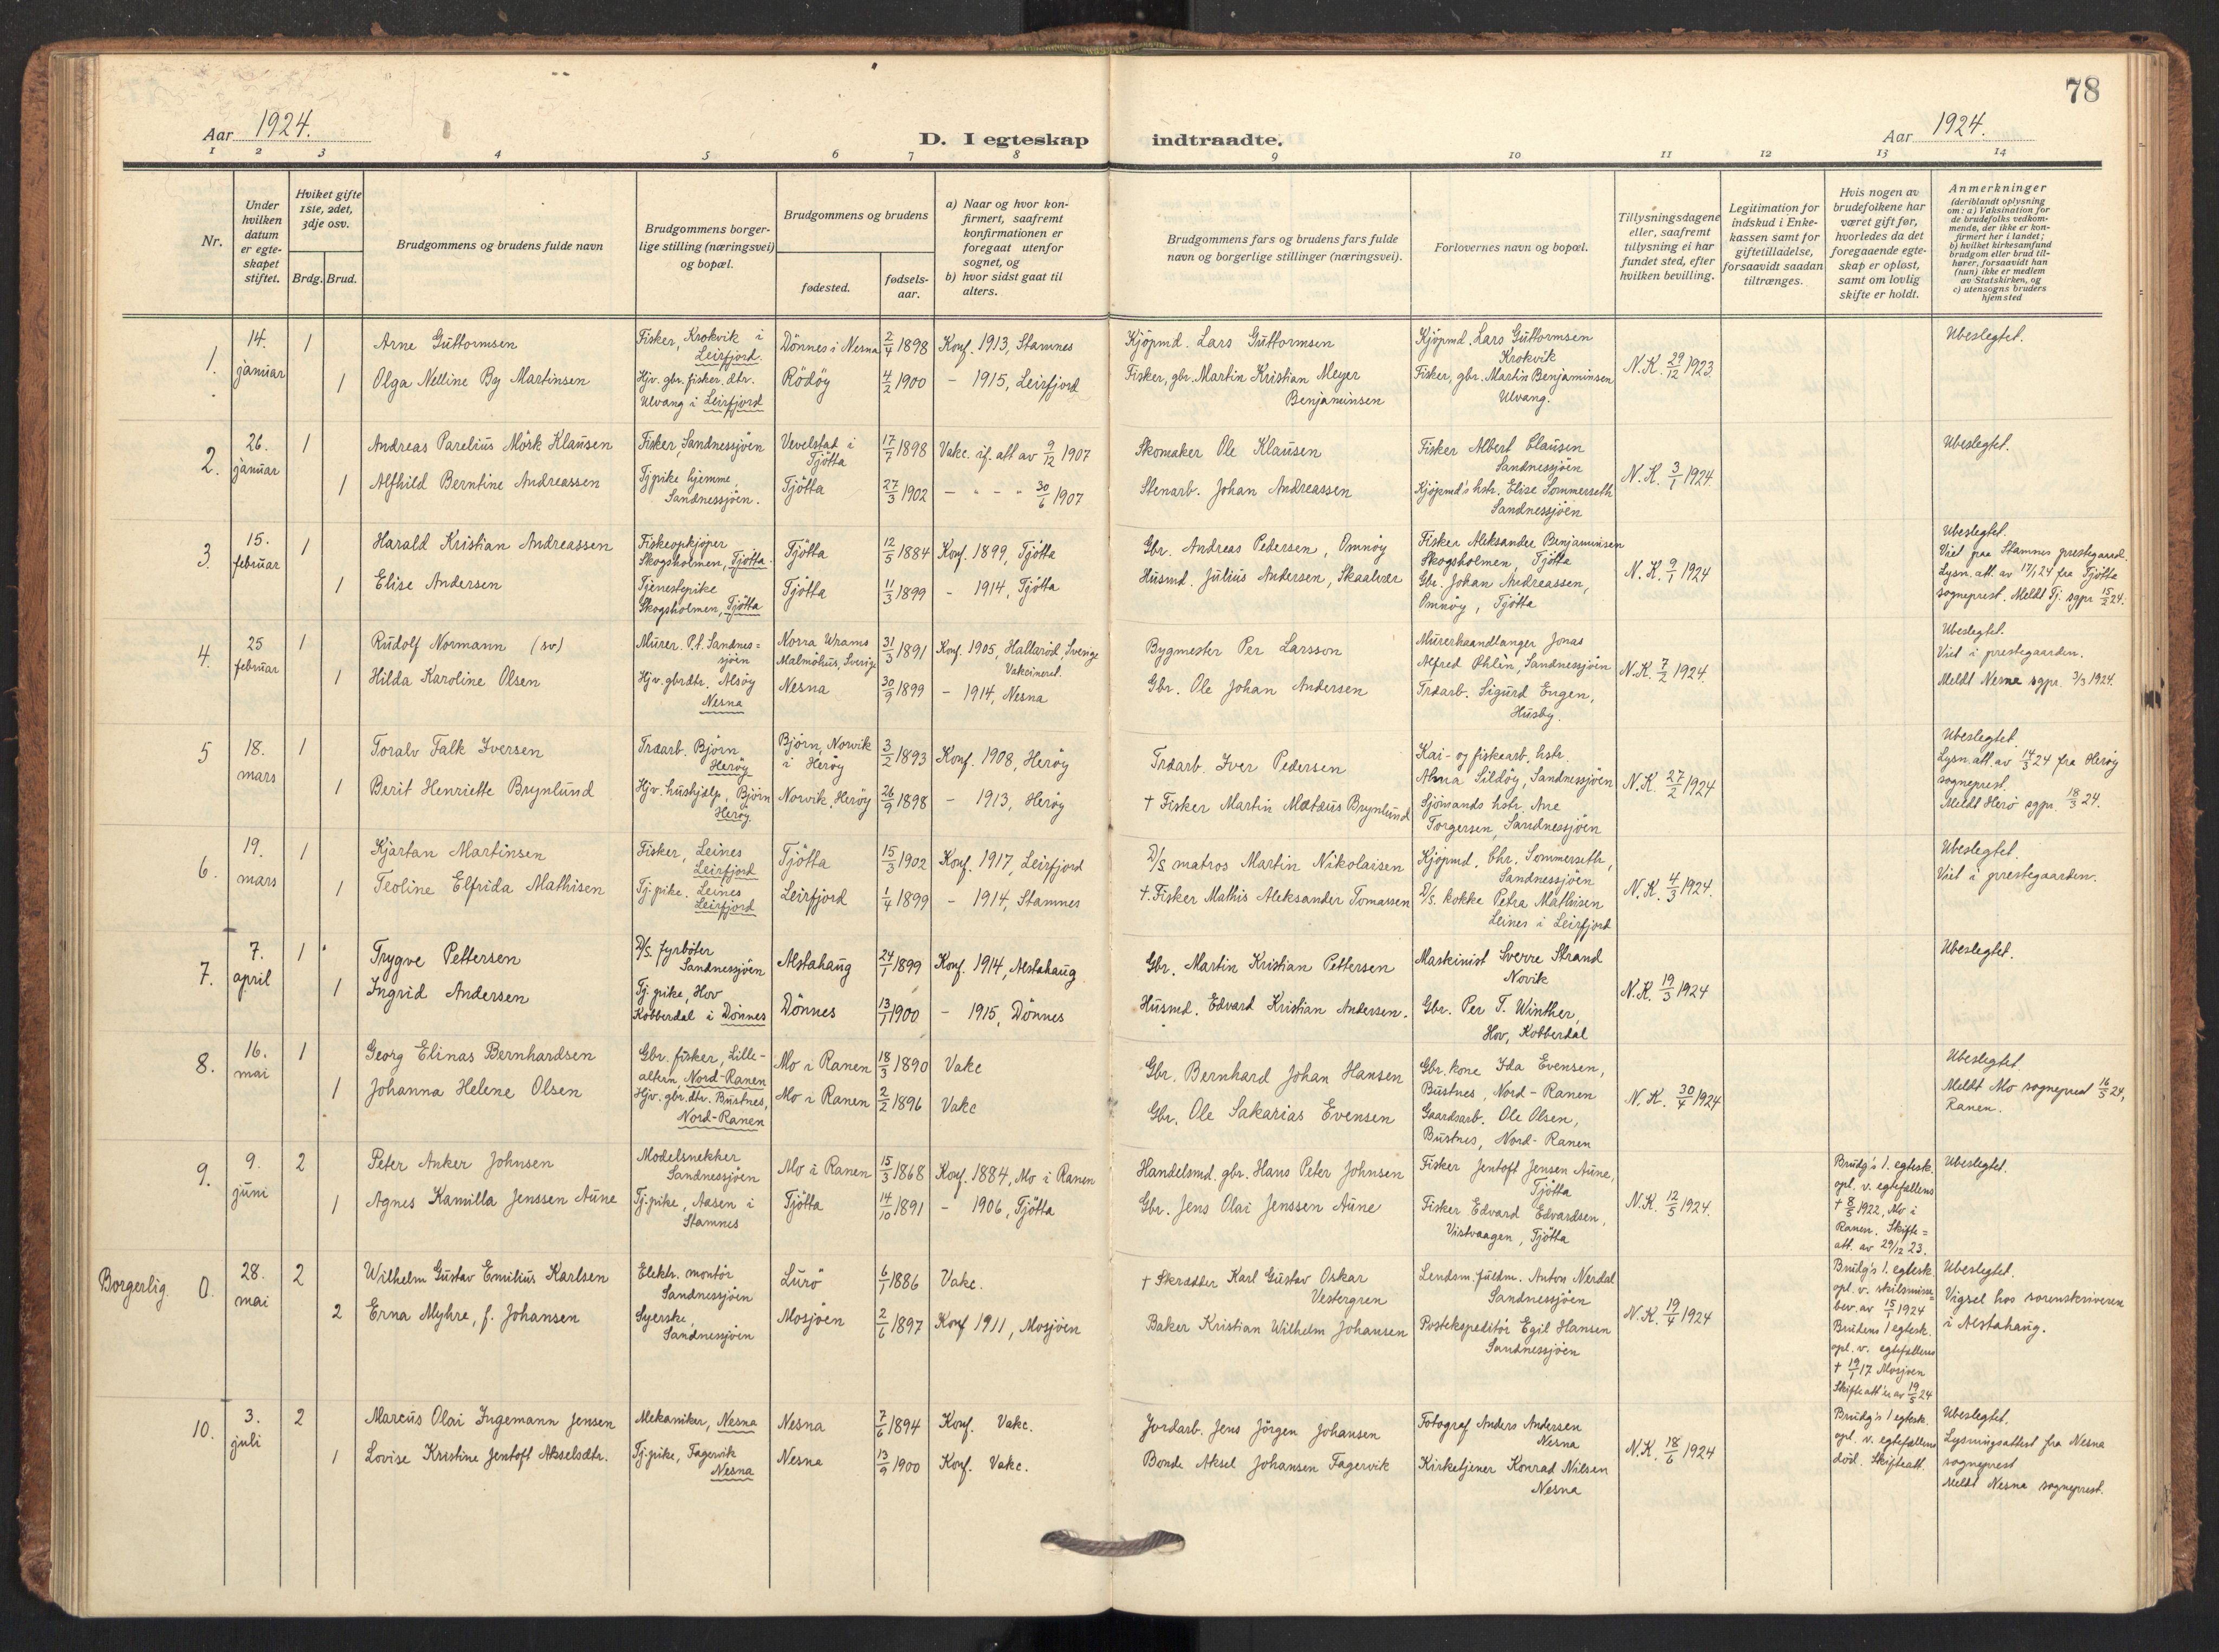 78
Aar 1924.
D. I egteskap indtraadte.
Aar 1924.
1 2 3 4 5 6 7 8 9 10 11 12 13 14
Nr.
Under hvilken datum er egteskapet stiftet.
Hvilket gifte 1ste, 2det, 3dje osv.
Brdg. Brud.
Brudgommens og brudens fulde navn
Brudgommens borgerlige stilling (næringsvei) og bopæl.
Brudgommens og brudens
fødested.
fødselsaar.
a) Naar og hvor konfirmert, saafremt konfirmationen er foregaat utenfor sognet, og
b) hvor sidst gaat til alters.
Brudgommens fars og brudens fars fulde navn og borgerlige stillinger (næringsvei).
Forlovernes navn og bopæl.
Tillysningsdagene eller, saafremt tillysning ei har fundet sted, efter hvilken bevilling.
Legitimation for indskud i Enkekassen samt for giftetilladelse, forsaavidt saadan tiltrænges.
Hvis nogen av brudefolkene har været gift før, hvorledes da det foregaaende egteskap er opløst, samt om lovlig skifte er holdt.
Anmerkninger (deriblandt oplysning om: a) Vaksination for de brudefolks vedkommende, der ikke er konfirmert her i landet; b) hvilket kirkesamfund brudgom eller brud tilhører, forsaavidt han (hun) ikke er medlem av Statskirken, og c) utensogns bruders hjemsted
1. 14. januar 1 Arne Guttormsen Fisker, Krokvik i Leirfjord. Dönnes i Nesna 2/4 1898 Konf. 1913, Stamnes Kjöpmd. Lars Guttormsen Kjöpmd. Lars Guttormsen Krokvik N.K. 29/12 1923. Ubeslegtet.
1 Olga Nelline By Martinsen Hjv. gbr. fisker. dtr. Ulvang i Leirfjord Rödöy 4/2 1900 – 1915, Leirfjord Fisker, gbr. Martin Kristian Meyer Benjaminsen Fisker, gbr. Martin Benjaminsen Ulvang.
2. 26. januar 1 Andreas Parelius Mörk Klausen Fisker, Sandnessjöen Vevelstad i Tjötta 17/7 1898 Vakc. if. att av 9/12 1907 Skomaker Ole Klausen Fisker Albert Clausen Sandnessjöen N.K. 3/1 1924. Ubeslegtet.
1 Alfhild Berntine Andreassen Tjpike hjemme, Sandnessjöen. Tjötta 27/3 1902 – " – " 30/6 1907 Stenarb. Johan Andreassen Kjöpmd's hstr. Elise Sommerseth Sandnessjöen
3. 15. februar 1 Harald Kristian Andreassen Fiskeopkjöper Skogsholmen, Tjötta. Tjötta 12/5 1884 Konf. 1899, Tjötta Gbr. Andreas Pedersen, Omnöy Fisker Aleksander Benjaminsen Skogsholmen, Tjötta N.K. 9/1 1924 Ubeslegtet. Viet paa Stamnes prestegaard. Lysn. att. av 17/1 24 fra Tjötta sogneprest. Meldt Tj. sgpr 15/2 24.
1 Elise Andersen Tjenestepike Skogsholmen, Tjötta Tjötta 11/3 1899 – 1914, Tjötta Husmd. Julius Andersen, Skaalvær Gbr. Johan Andreassen, Omnöy, Tjötta
4. 25 februar 1 Rudolf Normann (sv) Murer. P.t. Sandnessjöen Norra Wrams Malmöhus, Sverige 31/3 1891 Konf. 1905, Hallaröd, Sverige Vakcineret. Bygmester Per Larsson Murerhaandlanger Jonas Alfred Øhlin, Sandnessjöen N.K. 7/2 1924. Ubeslegtet. Viet i prestegaarden. Meldt Nesna sgpr. 3/3 1924.
1 Hilda Karoline Olsen Hjv. gbrdtr. Alsöy Nesna Nesna 30/9 1899 – 1914, Nesna Gbr. Ole Johan Andersen Træarb. Sigurd Engen, Husby.
5 18. mars 1 Toralv Falk Iversen Træarb. Björn Heröy Björn, Norvik i Heröy 3/2 1893 Konf. 1908, Heröy Træarb. Iver Pedersen Kai- og fiskearb. hstr. Alma Sildöy, Sandnessjöen N.K. 27/2 1924 Ubeslegtet. Lysn. att. av 14/3 24 fra Heröy sogneprest. Meldt Herö sgpr. 18/3 24.
1 Berit Henriette Brynlund Hjv. hushjælp, Björn Heröy. Norvik, Heröy 26/9 1898 – 1913, Heröy † Fisker Martin Matæus Brynlund Sjömands hstr. Ane Torgersen, Sandnessjöen
6. 19. mars 1 Kjartan Martinsen Fisker, Leines Leirfjord Tjötta 15/3 1902 Konf. 1917, Leirfjord D/S matros Martin Nikolaisen Kjöpmd. Chr. Sommerseth, Sandnessjöen N.K. 4/3 1924. Ubeslegtet. Viet i prestegaarden.
1 Teoline Elfrida Mathisen Tj. pike. Leines Leirfjord Leirfjord 1/4 1899 – 1914, Stamnes †. Fisker Mathis Aleksander Tomassen D/S. kokke Petra Mathisen Leines i Leirfjord
7. 7. april 1 Trygve Pettersen D/S. fyrböter Sandnessjöen Alstahaug 24/1 1899 Konf. 1914, Alstahaug Gbr. Martin Kristian Pettersen Maskinist Sverre Strand Novik N.K. 19/3 1924 Ubeslegtet.
1 Ingrid Andersen Tj. pike, Hov Kobberdal i Dönnes Dönnes 13/1 1900 – 1915, Dönnes Husmd. Edvard Kristian Andersen. Gbr. Per T. Winther, Hov, Kobberdal
8. 16. mai 1 Georg Elinas Bernhardsen Gbr. fisker, Lillealteren, Nord-Ranen Mo i Ranen 18/3 1890 Vakc Gbr. Bernhard Johan Hansen Gbr. kone Ida Evensen, Bustnes, Nord-Ranen N.K. 30/4 1924 Ubeslegtet. Meldt Mo sogneprest 16/5 24, Ranen.
1 Johanna Helene Olsen Hjv. gbr. dtr. Bustnes, Nord-Ranen Mo i Ranen 2/2 1896 Vakc Gbr. Ole Sakarias Evensen Gaardsarb. Ole Olsen, Bustnes, Nord-Ranen
9. 9. juni 2 Peter Anker Johnsen Modelsnekker Sandnessjöen Mo i Ranen 15/3 1868 Konf. 1884, Mo i Ranen Handelsmd. gbr. Hans Peter Johnsen Fisker Jentoft Jensen Aune, Tjötta N.K. 12/5 1924. Brudg's 1. egtesk. opl. v. egtefællens † 8/5 1922, Mo i Ranen. Skifte= att. av 29/12 23. Ubeslegtet.
1 Agnes Kamilla Jenssen Aune Tj. pike, Aasen i Stamnes Tjötta 14/10 1891 – 1906, Tjötta Gbr. Jens Olai Jenssen Aune Fisker Edvard Edvardsen, Vistvaagen, Tjötta
Borgerlig 0. 28. mai 2 Wilhelm Gustav Emilius Karlsen Elektr. montör Sandnessjöen Lurö 6/1 1886 Vakc. † Skrædder Karl Gustav Oskar Vestergren Lendsm. fuldm. Anton Nerdal Sandnessjöen N.K. 19/4 1924 Brudg's 1. egtesk. opl. v. skilsmisse= bev. av 15/1 1924 Ubeslegtet. Vigsel hos sorenskriveren i Alstahaug.
2 Erna Myhre, f. Johansen Syerske, Sandnessjöen Mosjöen 2/6 1897 Konf 1911, Mosjöen Baker Kristian Wilhelm Johansen Postekspeditör Egil Hansen Sandnessjöen Brudens 1 egtesk. opl. v. egtefællens † 19/1 17 Mosjöen Skifteatt'er av 19/5 24
10. 3. juli 2 Marcus Olai Ingemann Jensen Mekaniker, Nesna Nesna 7/6 1894 Konf. Vakc. Jordarb. Jens Jörgen Johansen Fotograf Anders Andersen Nesna N.K. 18/6 1924 Brudg's 1 egtesk. opl. v. egtefællens död. Skifteatt. Ubeslegtet. Lysningsattest fra Nesna sogneprest Meldt Nesna sogneprest.
1 Lovise Kristine Jentoft Akselsdtr. Tj. pike, Fagervik Nesna Nesna 13/9 1900 Konf. Vakc. Bonde Aksel Johansen Fagervik Kirketjener Konrad Nilsen Nesna